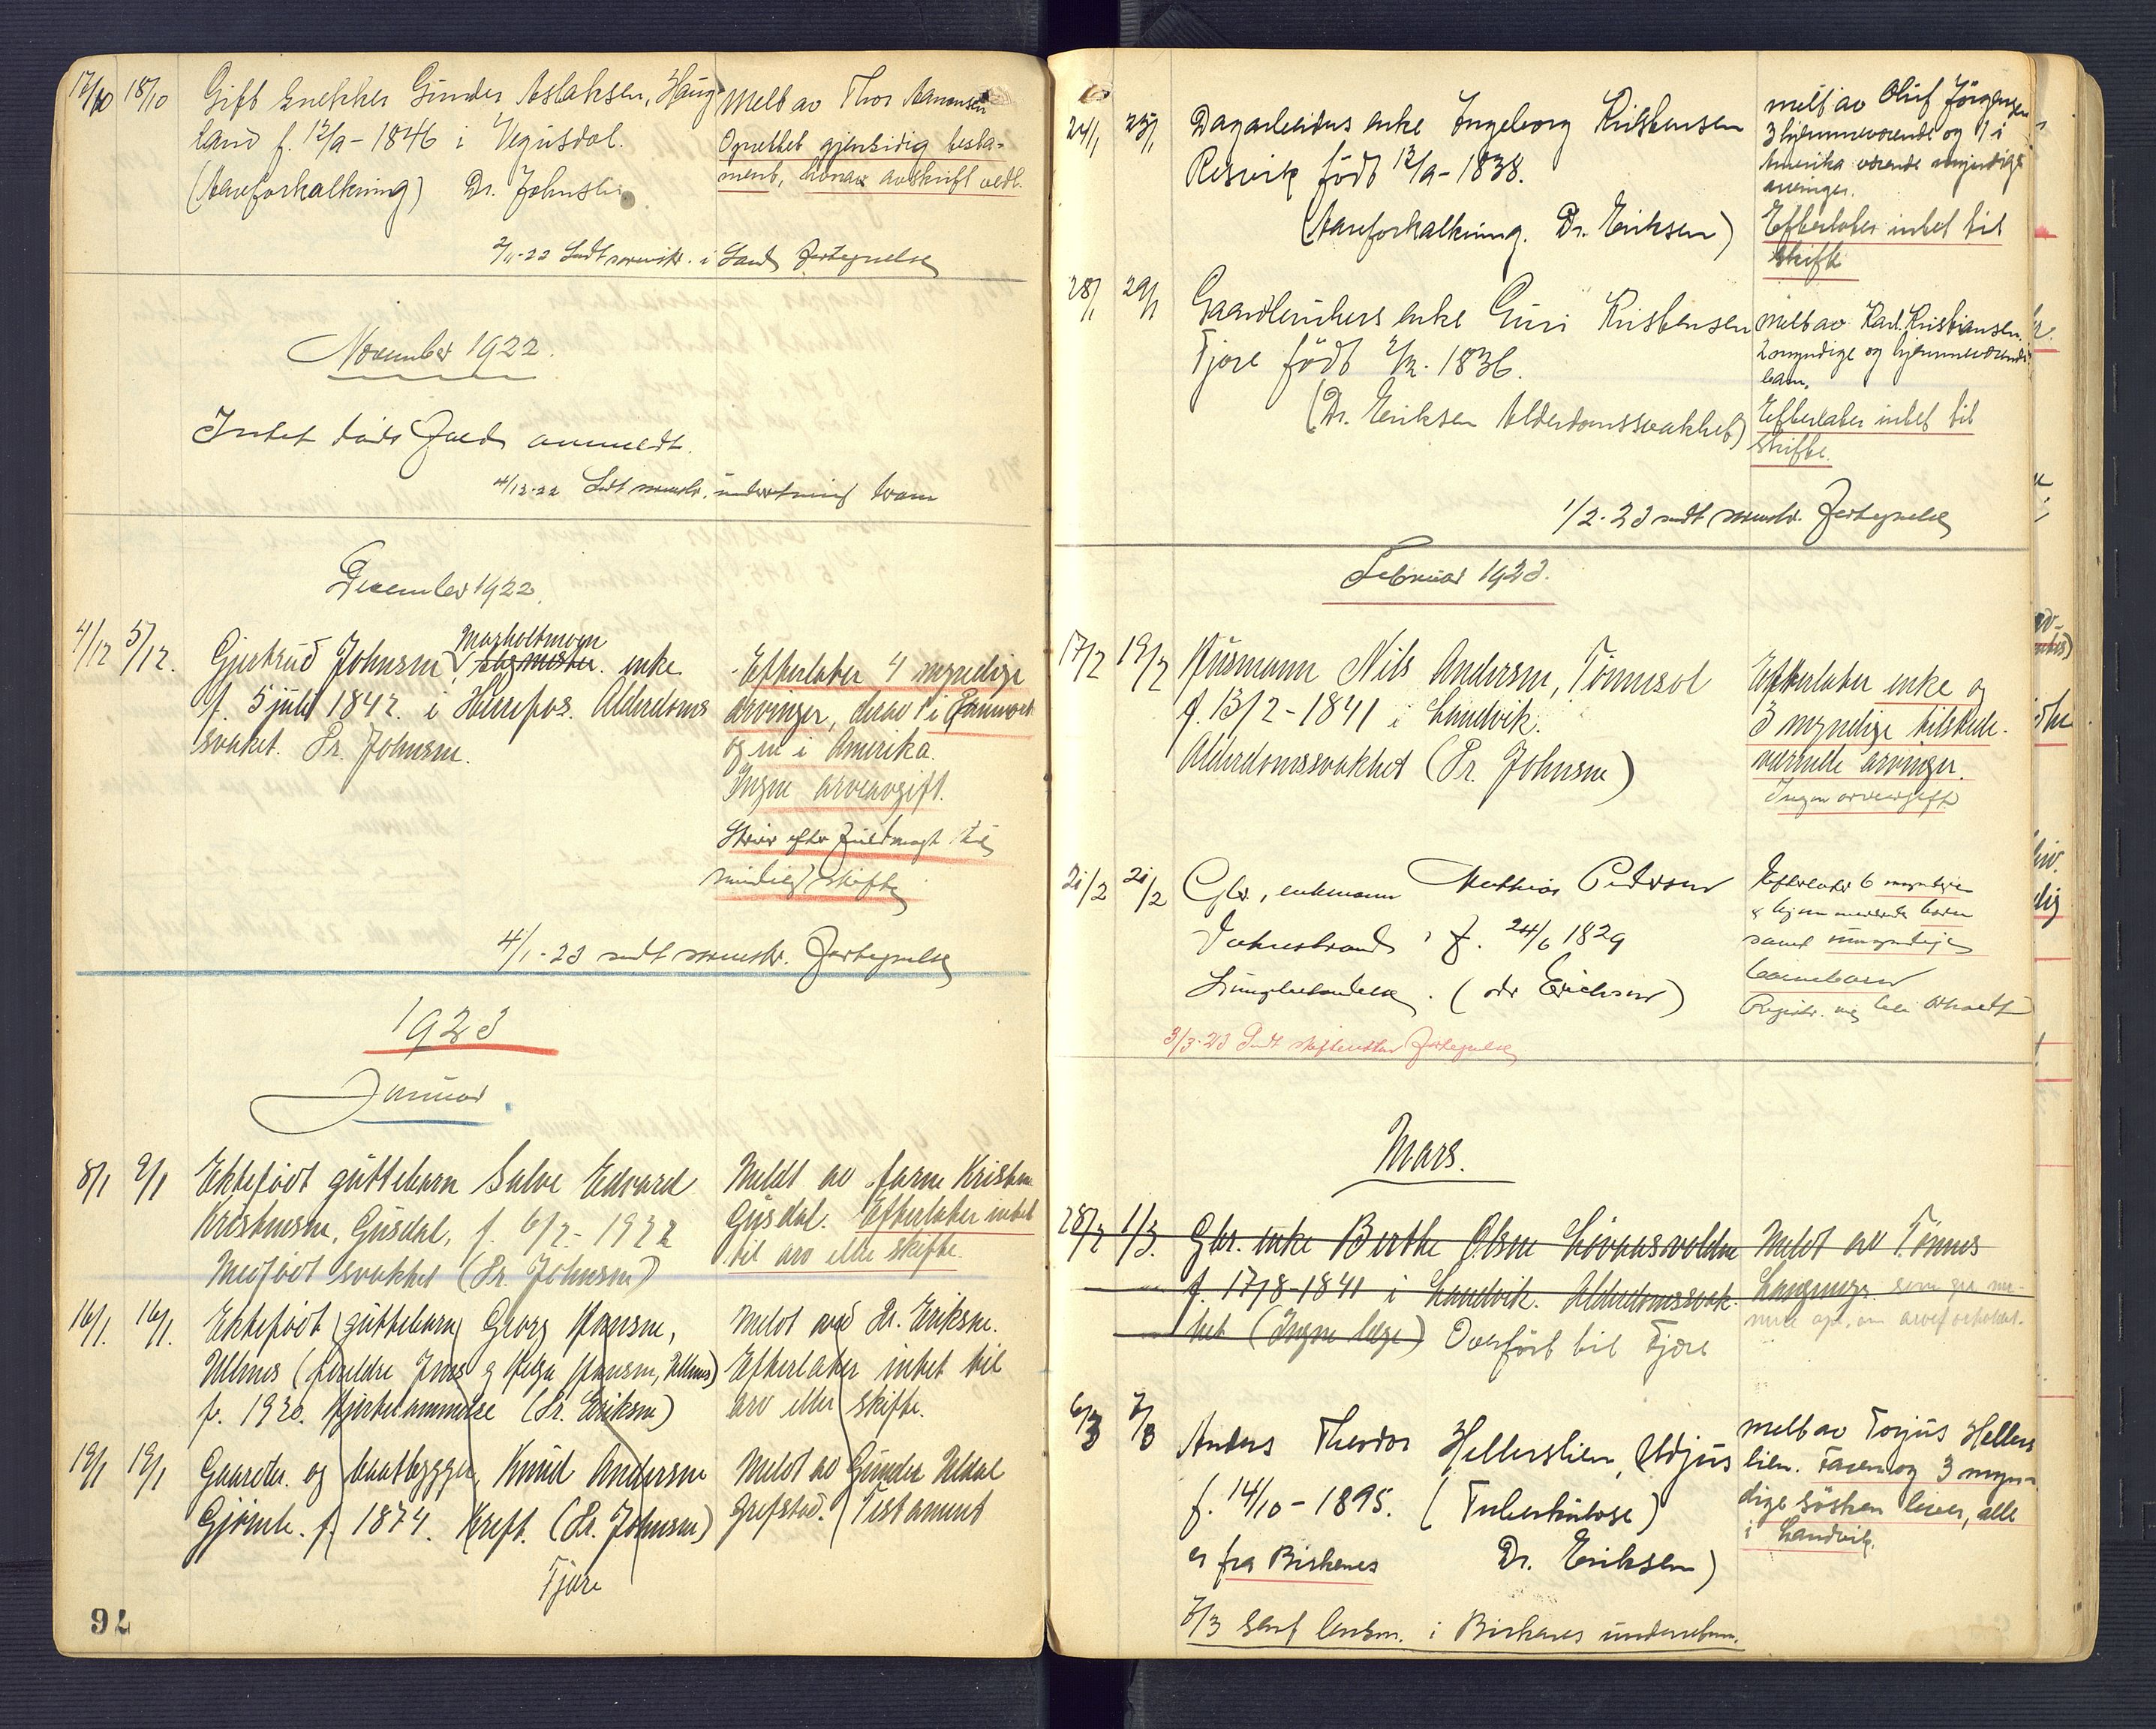 17/10 18/10 Gift snekker Gunder Aslaksen, Haug-
land f. 12/9 - 1846 i Vegusdal.
(Aareforkalkning) Dr. Johnsen
Melt av Thor Aanonsen
Oprettet gjensidig testa-
ment, hvorav avskrift vedl.
2/11-22 Sendt sorenskr. i Sand Fortegnelse
November 1922.
Intet døds fald anmeldt.
4/12-22 Sendt sorenskr. underretning herom
December 1922.
4/12 5/12. Gjertrud Johnsen, Morholtmoen enke
f. 5 juli 1842. i Herefos. Alderdoms
svakhet. Dr. Johnsen.
Efterlater 4 myndige
arvinger, derav 1 i
og en i Amerika.
Ingen arveavgift.
Skriv efter fuldmagt til
mindelig skifte
4/1-23 sendt sorenskr. Fortegnelse
1923
Januar
8/1 9/1 Ektefødt guttebarn Salve Edvard
Kristensen, Gusdal, f. 6/2 - 1922
Medfødt svakhet (Dr. Johnsen)
Meldt av faren Kristen
Gusdal. Efterlater intet
til arv eller skifte.
16/1. 16/1. Ektefødt guttebarn Georg Hansen,
(foreldre Jens og Helga Hansen,
f. 1920. Hjertelammelse (Dr. Eriksen)
Meldt ved Dr. Eriksen.
Efterlater intet til
arv eller skifte.
19/1 19/1 Gaardbr. og baatbygger, Knud Andersen
Gjømle. f. 1874. Kreft. (Dr. Johnsen)
Meldt av Gunder
Grefstad. Testament
Fjære
92
24/1 25/1 Dagarbeiders enke Ingeborg Kristensen
Resvik født 12/9 - 1838.
(Aareforkalkning. Dr. Eriksen)
melt av Oluf Jörgensen
3 hjemmeværende og 1 i
Amerika værende myndige
arvinger.
Efterlater intet til
skifte
28/1 29/1 Gaardbrukers enke Guri Kristensen
Fjære født 2/12 - 1836.
(Dr. Eriksen Alderdomssvakhet)
Melt av Karl Kristiansen.
2 myndige og hjemmeværende
barn.
Efterlater intet til
skifte.
1/2-23 sendt sorenskr. Fortegnelse
Februar 1923.
17/2 19/2 Husmann Nils Andersen, Tønnesøl
f. 13/2 - 1841 i Landvik.
Alderdomssvakhet (Dr. Johnsen)
Efterlater enke og
3 myndige tilstede-
værende arvinger.
Ingen arveavgift
21/2 21/2 Gbr., enkemann Mathias Pedersen
f. 24/6 1829
Lungebetændelse. (dr Erichsen)
Efterlater 6 myndige
& hjemmeværende barn
samt umyndige
barnebarn
3/3-23 Sendt skifteretten Fortegnelse
Mars.
28/2 1/3. Gbr. enke Berthe Olsen Løvaasvolden
f. 17/8 - 1841 i Landvik. Alderdomssvak-
het (Ingen læge) Overført til Fjære
Meldt av Tønnes
6/3 7/3 Anders Theodor Hellerslien,
f. 14/10 - 1895. (Tuberkulose)
er fra Birkenes Dr. Eriksen)
melt av Torjus Hellers
lien. Faren og 3 myn-
dige søsken lever, alle
i Landvik.
7/3 Sent lensm. i Birkenes underretn.